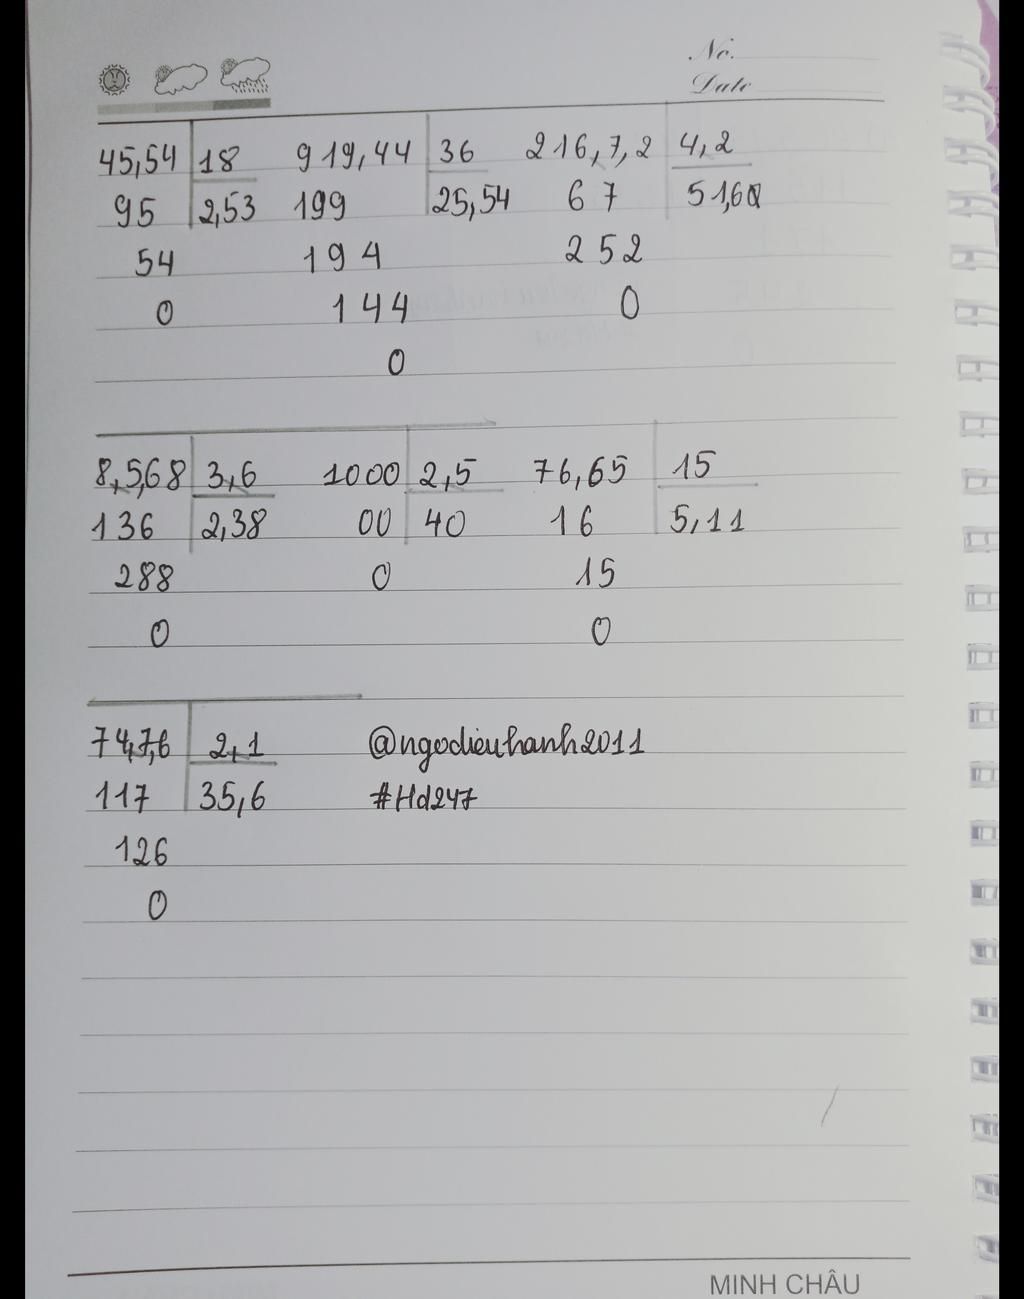 No.
Date
45,54 18 919,44 36 216,7,2 4,2
95 2,53 199 25,54 67 51,60
54 194 252
0 144 0
0
8,5,68 3,6 1000 2,5 76,65 15
136 2,38 00 40 16 5,11
288 0 15
0 0
74,7,6 2,1 @ngodieuhanh2011
117 35,6 #Hd247
126
0
MINH CHÂU